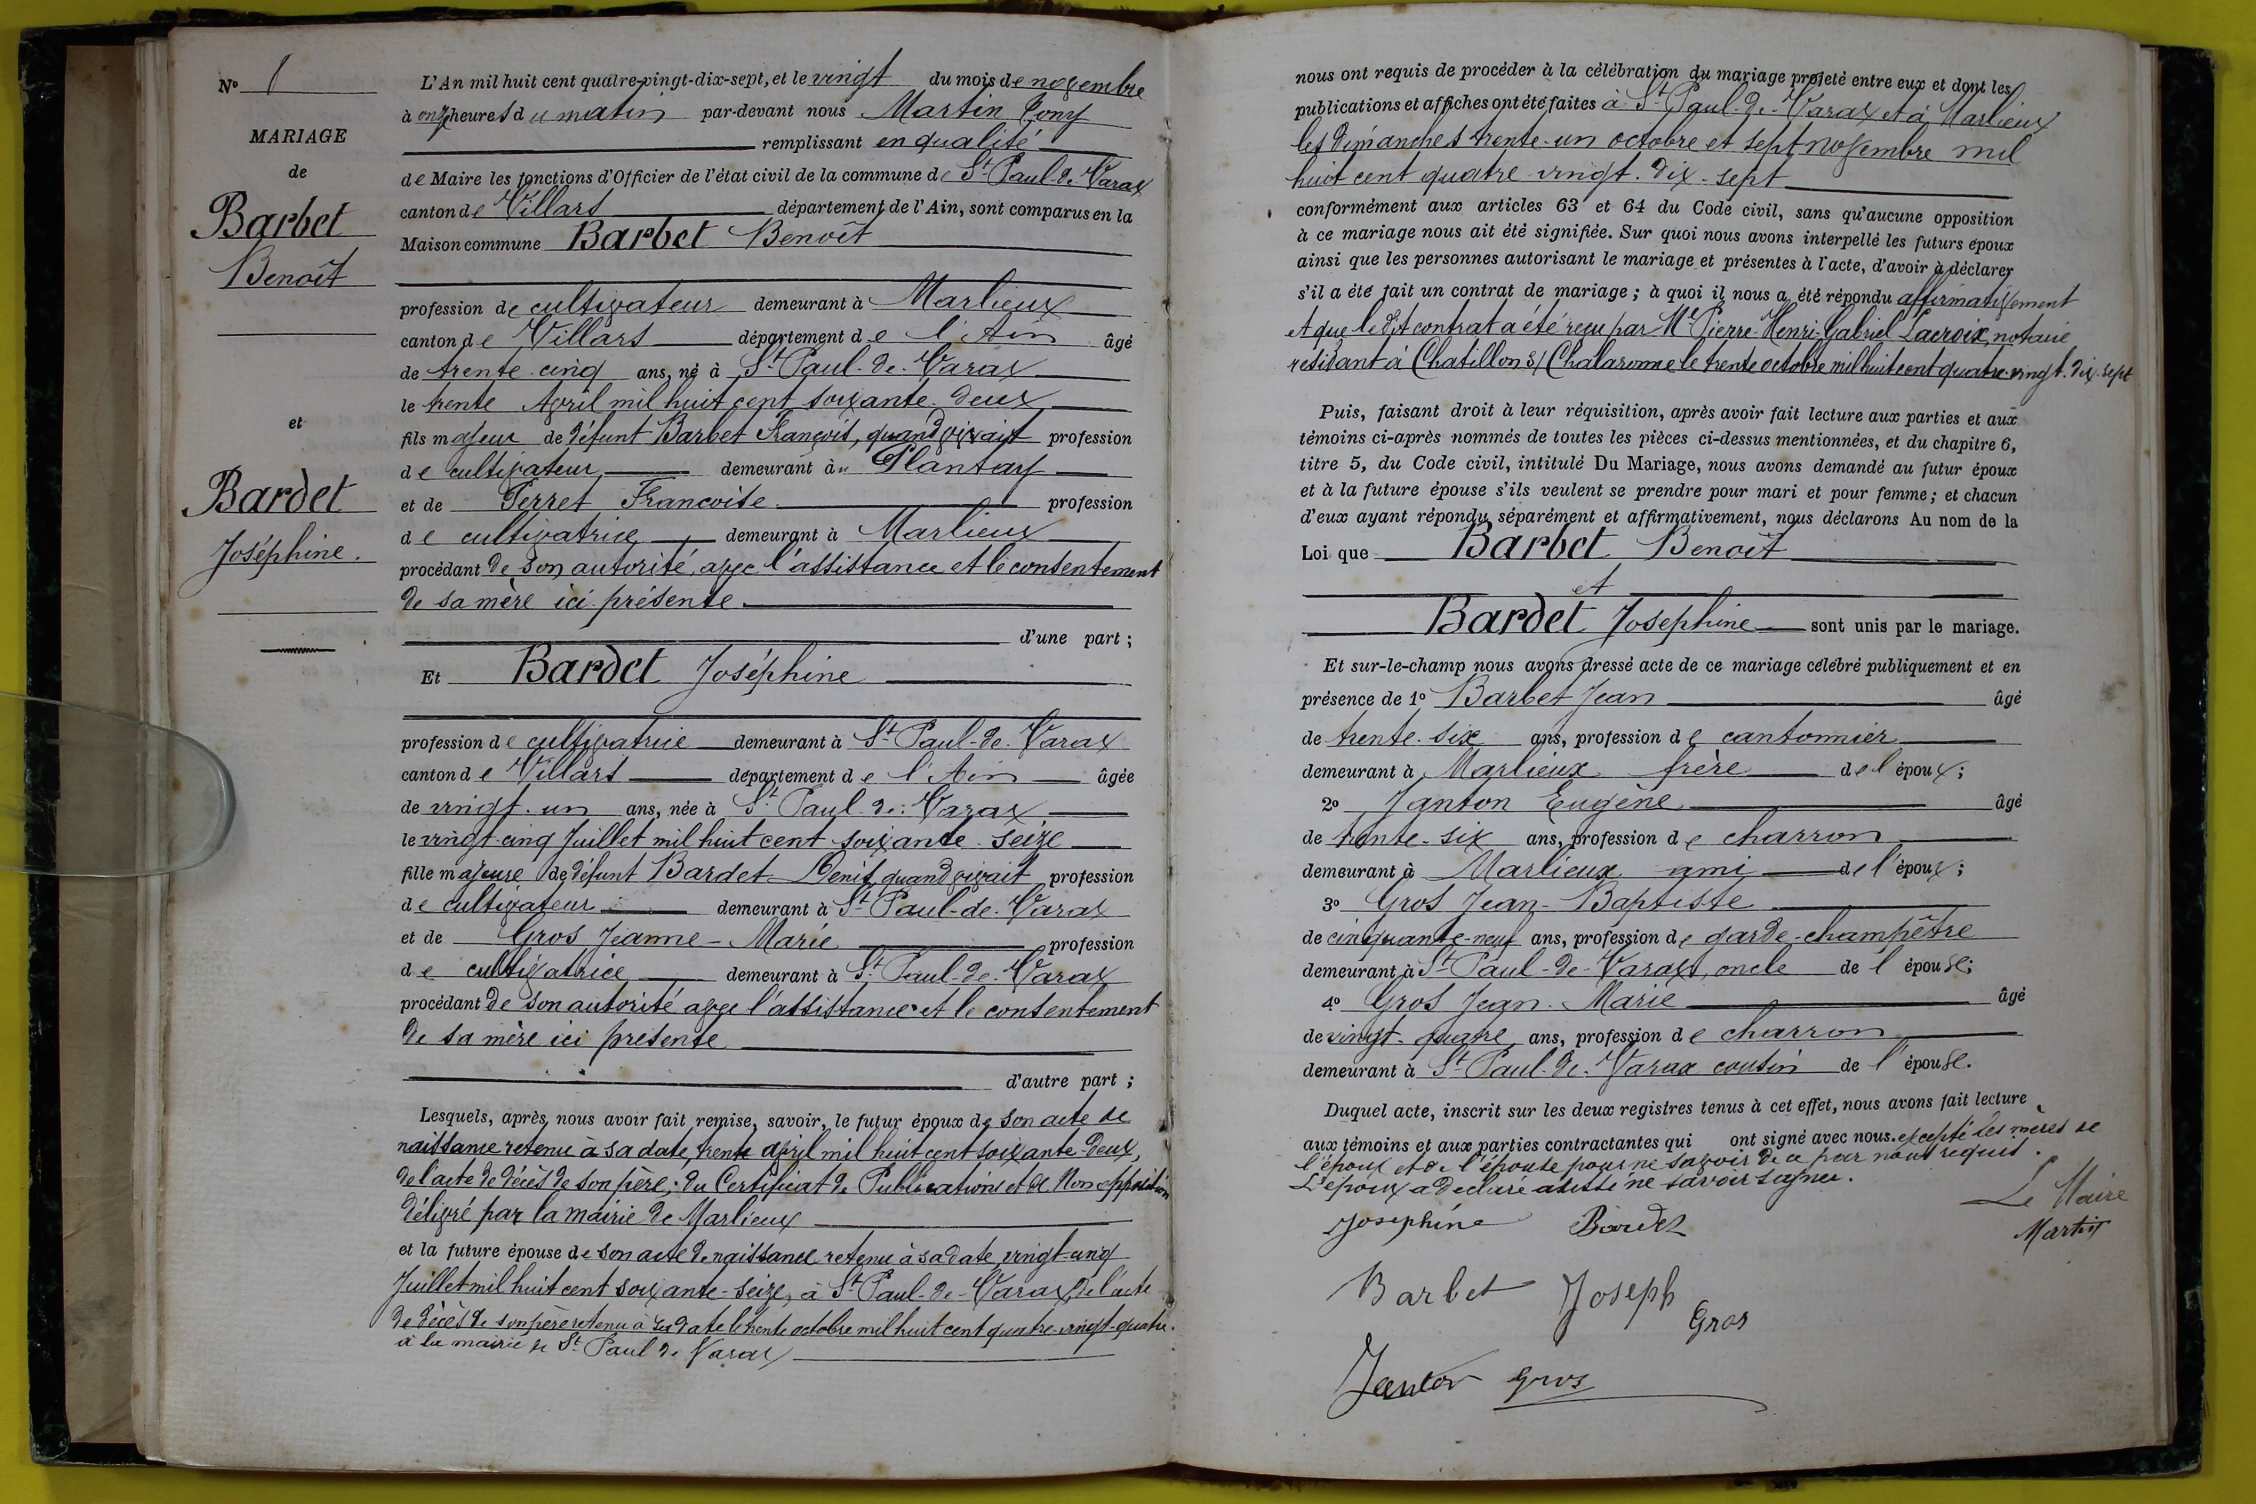 N° 8
MARIAGE
de
Barbet
Benoît
et
Bardet
Joséphine.
L'An mil huit cent quatre-vingt-dix-sept, et le vingt du mois de novembre
à onze heures du matin par-devant nous Martin Tony
remplissant en qualité
de Maire les fonctions d'Officier de l'état civil de la commune de St Paul-de-Varax
canton de Villars département de l'Ain, sont comparus en la
Maison commune Barbet Benoît
profession de cultivateur demeurant à Marlieux
canton de Villars département de l'Ain âgé
de trente-cinq ans, né à St Paul-de-Varax
le trente Avril mil huit cent soixante-deux
fils majeur de défunt Barbet François, quand vivait profession
de cultivateur demeurant au Plantay
et de Perret Françoise profession
de cultivatrice demeurant à Marlieux
procédant de son autorité, avec l'assistance et le consentement
de sa mère ici présente
d'une part ;
Et Bardet Joséphine
profession de cultivatrice demeurant à St Paul-de-Varax
canton de Villars département de l'Ain âgée
de vingt-un ans, née à St Paul-de-Varax
le vingt-cinq Juillet mil huit cent soixante-seize
fille majeure de défunt Bardet Denis, quand vivait profession
de cultivateur demeurant à St Paul-de-Varax
et de Gros Jeanne-Marie profession
de cultivatrice demeurant à St Paul-de-Varax
procédant de son autorité avec l'assistance et le consentement
de sa mère ici présente
d'autre part ;
Lesquels, après nous avoir fait remise, savoir, le futur époux de son acte de
naissance retenu à sa date, trente avril mil huit cent soixante-deux,
de l'acte de décès de son père ; du Certificat de Publications et de Non opposition
délivré par la mairie de Marlieux
et la future épouse de son acte de naissance retenu à sa date vingt-cinq
Juillet mil huit cent soixante-seize, à St Paul-de-Varax, de l'acte
de décès de son père retenu à sa date le trente octobre mil huit cent quatre-vingt-quatre.
à la mairie de St Paul de Varax
nous ont requis de procéder à la célébration du mariage projeté entre eux et dont les
publications et affiches ont été faites à St Paul-de-Varax et à Marlieux
les dimanches trente-un octobre et sept novembre mil
huit cent quatre-vingt-dix-sept
conformément aux articles 63 et 64 du Code civil, sans qu'aucune opposition
à ce mariage nous ait été signifiée. Sur quoi nous avons interpellé les futurs époux
ainsi que les personnes autorisant le mariage et présentes à l'acte, d'avoir à déclarer
s'il a été fait un contrat de mariage ; à quoi il nous a été répondu affirmativement
et que le dit contrat a été reçu par Me Pierre-Henri-Gabriel Lacroix, notaire
résidant à Chatillon s/ Chalaronne le trente octobre mil huit cent quatre-vingt-dix-sept
Puis, faisant droit à leur réquisition, après avoir fait lecture aux parties et aux
témoins ci-après nommés de toutes les pièces ci-dessus mentionnées, et du chapitre 6,
titre 5, du Code civil, intitulé Du Mariage, nous avons demandé au futur époux
et à la future épouse s'ils veulent se prendre pour mari et pour femme ; et chacun
d'eux ayant répondu séparément et affirmativement, nous déclarons Au nom de la
Loi que Barbet Benoît
et
Bardet Joséphine sont unis par le mariage.
Et sur-le-champ nous avons dressé acte de ce mariage célébré publiquement et en
présence de 1° Barbet Jean âgé
de trente-six ans, profession de cantonnier
demeurant à Marlieux frère de l'époux ;
2° Janton Eugène âgé
de trente-six ans, profession de charron
demeurant à Marlieux ami de l'époux ;
3° Gros Jean-Baptiste
de cinquante-neuf ans, profession de garde-champêtre
demeurant à St Paul-de-Varax, oncle de l'épouse ;
4° Gros Jean-Marie âgé
de vingt-quatre ans, profession de charron
demeurant à St Paul-de-Varax cousin de l'épouse.
Duquel acte, inscrit sur les deux registres tenus à cet effet, nous avons fait lecture
aux témoins et aux parties contractantes qui ont signé avec nous. excepté les mères de
l'époux et de l'épouse pour ne savoir de ce par nous requis.
L'époux a déclaré aussi ne savoir signer.
Josephine Bardet
Le Maire
Martin
Barbet Joseph
Gros
Janton Gros